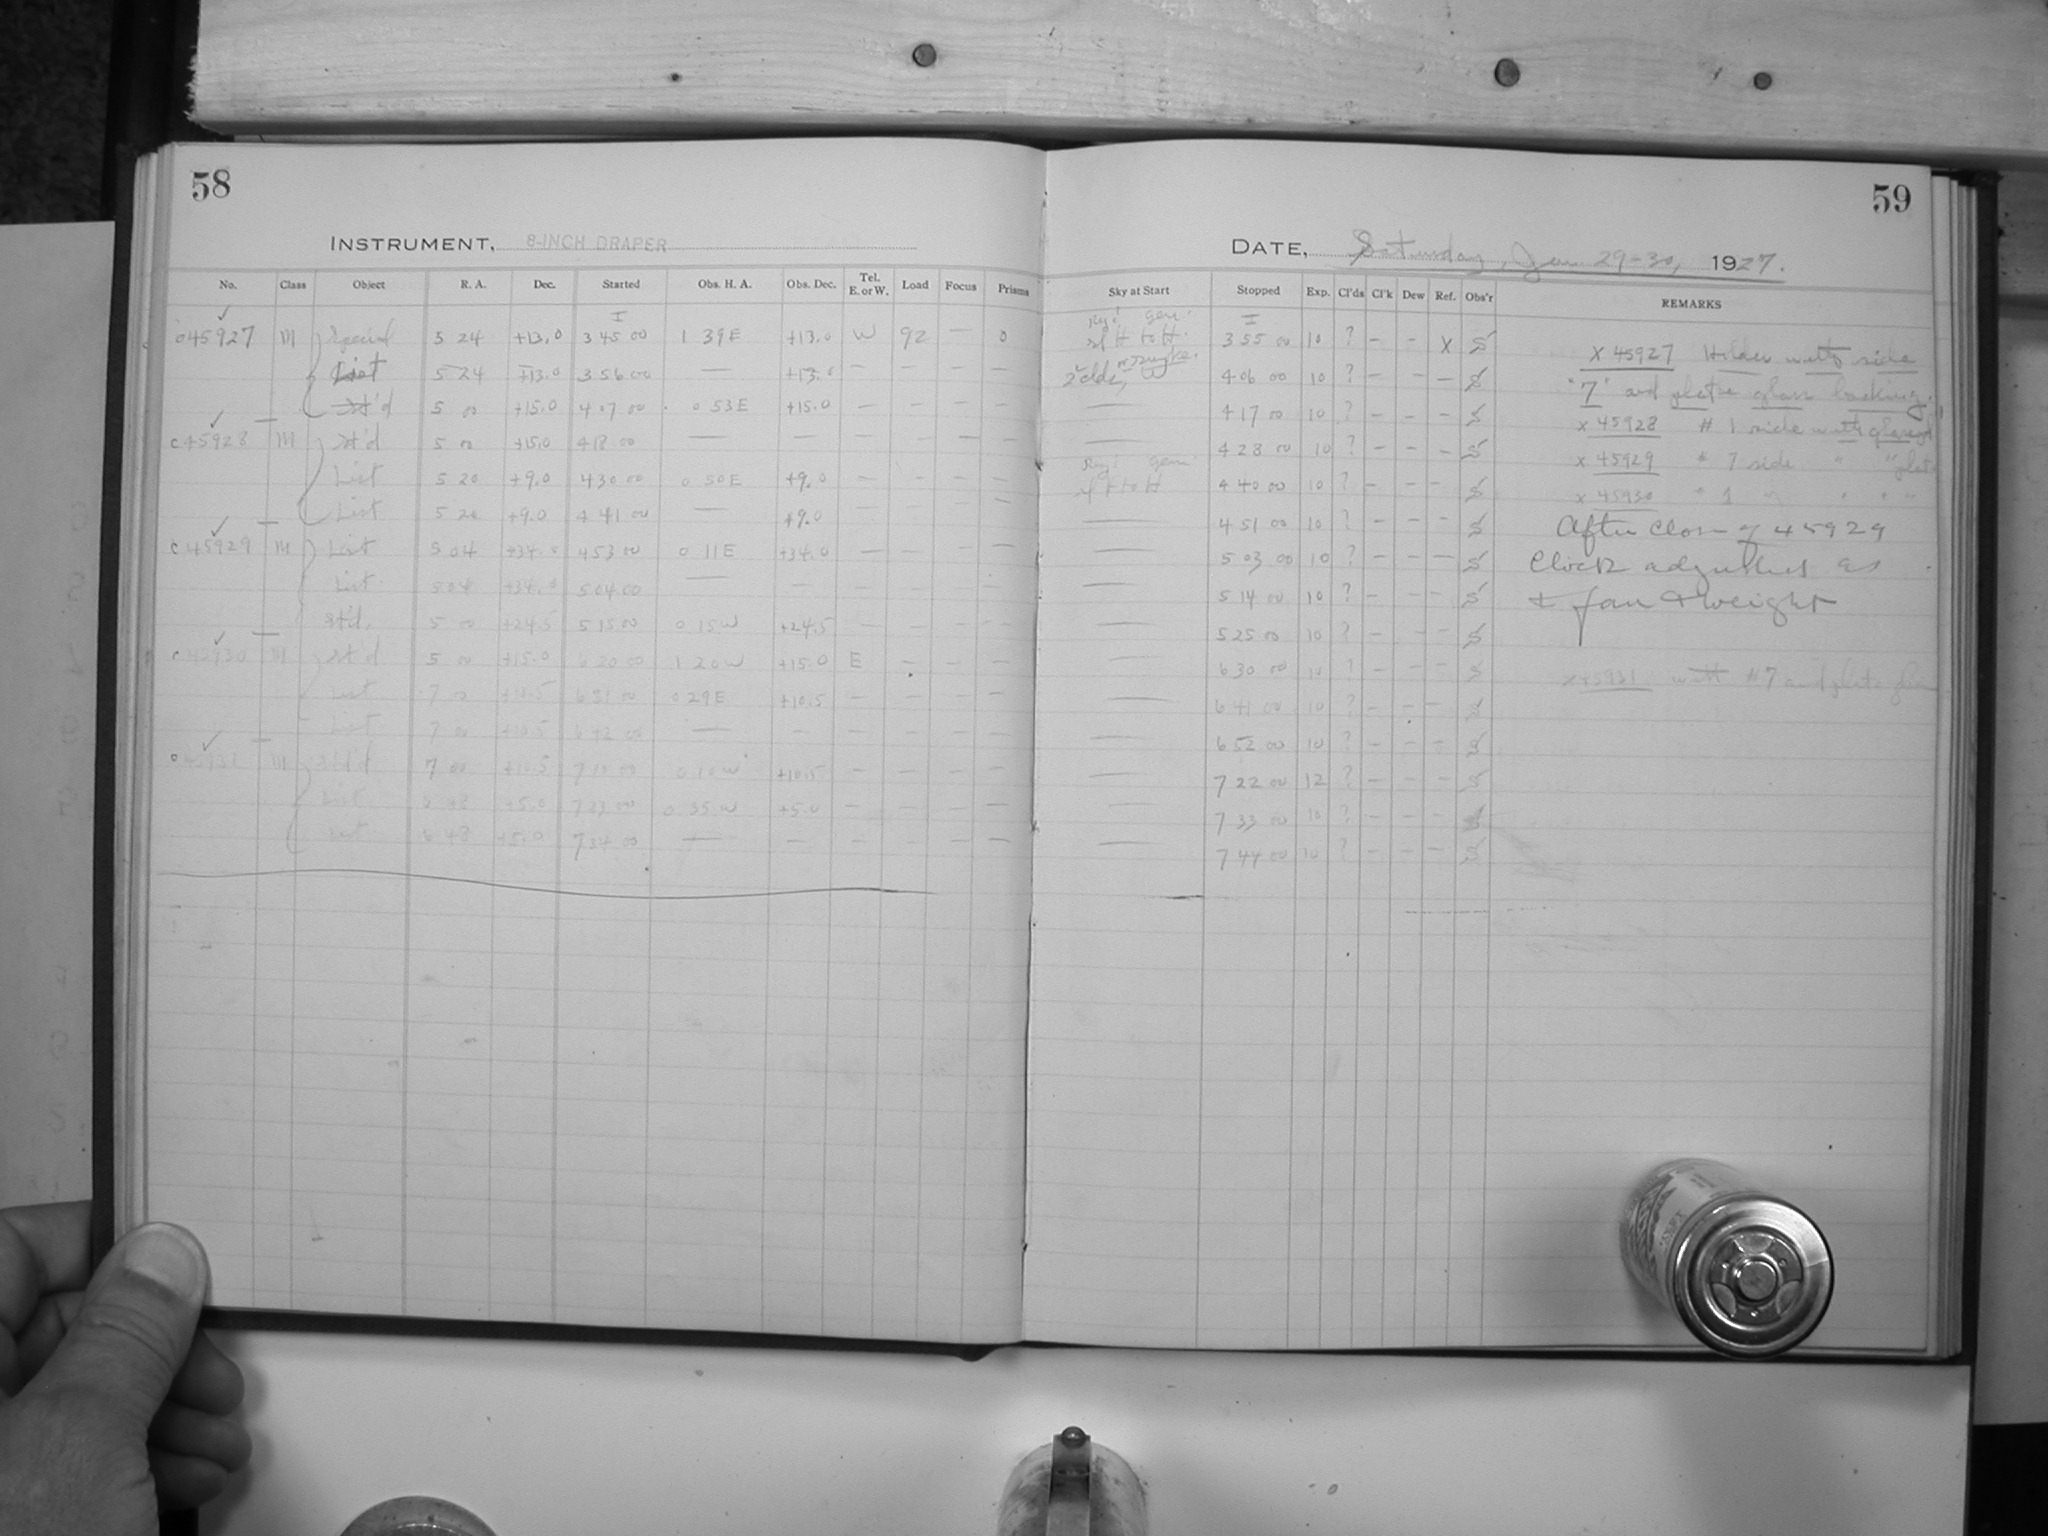 58
59
INSTRUMENT, 8-INCH DRAPER
DATE, Saturday, Jan 29-30, 1927.
No. Class Object R. A. Dec. Started Obs. H. A. Obs. Dec. Tel. E. or W. Load Focus Prisms
Sky at Start Stopped Exp. Cl'ds Cl'k Dew Ref. Obs'r REMARKS
45927 M Special 5 24 +13.0 3 45 00 1 39 E +13.0 W 92 — 0
3 55 00 10 ? – – X S
List 5 24 +13.0 3 56 00 — +13.0 — — — —
4 06 00 10 ? – – – S
St'd 5 00 +15.0 4 07 00 0 53 E +15.0 — — — —
4 17 00 10 ? – – – S
c45928 M St'd 5 00 +15.0 4 18 00 — — — — — —
4 28 00 10 ? – – – S
List 5 20 +9.0 4 30 00 0 50 E +9.0 — — — —
4 40 00 10 ? – – – S
List 5 20 +9.0 4 41 00 — +9.0 — — — —
4 51 00 10 ? – – – S
c45929 M List 5 04 +34.0 4 53 00 0 11 E +34.0 — — — —
5 03 00 10 ? – – – S
List 5 04 +34.0 5 04 00 — — — — — —
5 14 00 10 ? – – – S
St'd. 5 00 +24.5 5 15 00 0 15 W +24.5 — — — —
5 25 00 10 ? – – – S
M St'd 5 00 +15.0 6 20 00 1 20 W +15.0 E — — —
6 30 00 10 ? – – – S
List 7 00 +10.5 6 31 00 0 29 E +10.5 — — — —
6 41 00 10 ? – – – S
List 7 00 +10.5 6 42 00 — — — — — —
6 52 00 10 ? – – – S
M St'd 7 00 +10.5 7 10 00 0 10 W +10.5 — — — —
7 22 00 12 ? – – – S
List +5.0 7 23 00 0 35 W +5.0 — — — —
7 33 00 10 ? – – – S
List +5.0 7 34 00 — — — — — —
7 44 00 10 ? – – – S
X 45927 Holder with side
"7" and plate glass backing.
X 45928 # 1 side with glass
X 45929 " 7 side " "
X 45930 " 1 " " "
After close of 45929
Clock adjusted as
to fan & weight
X 45931 with #7 and plate